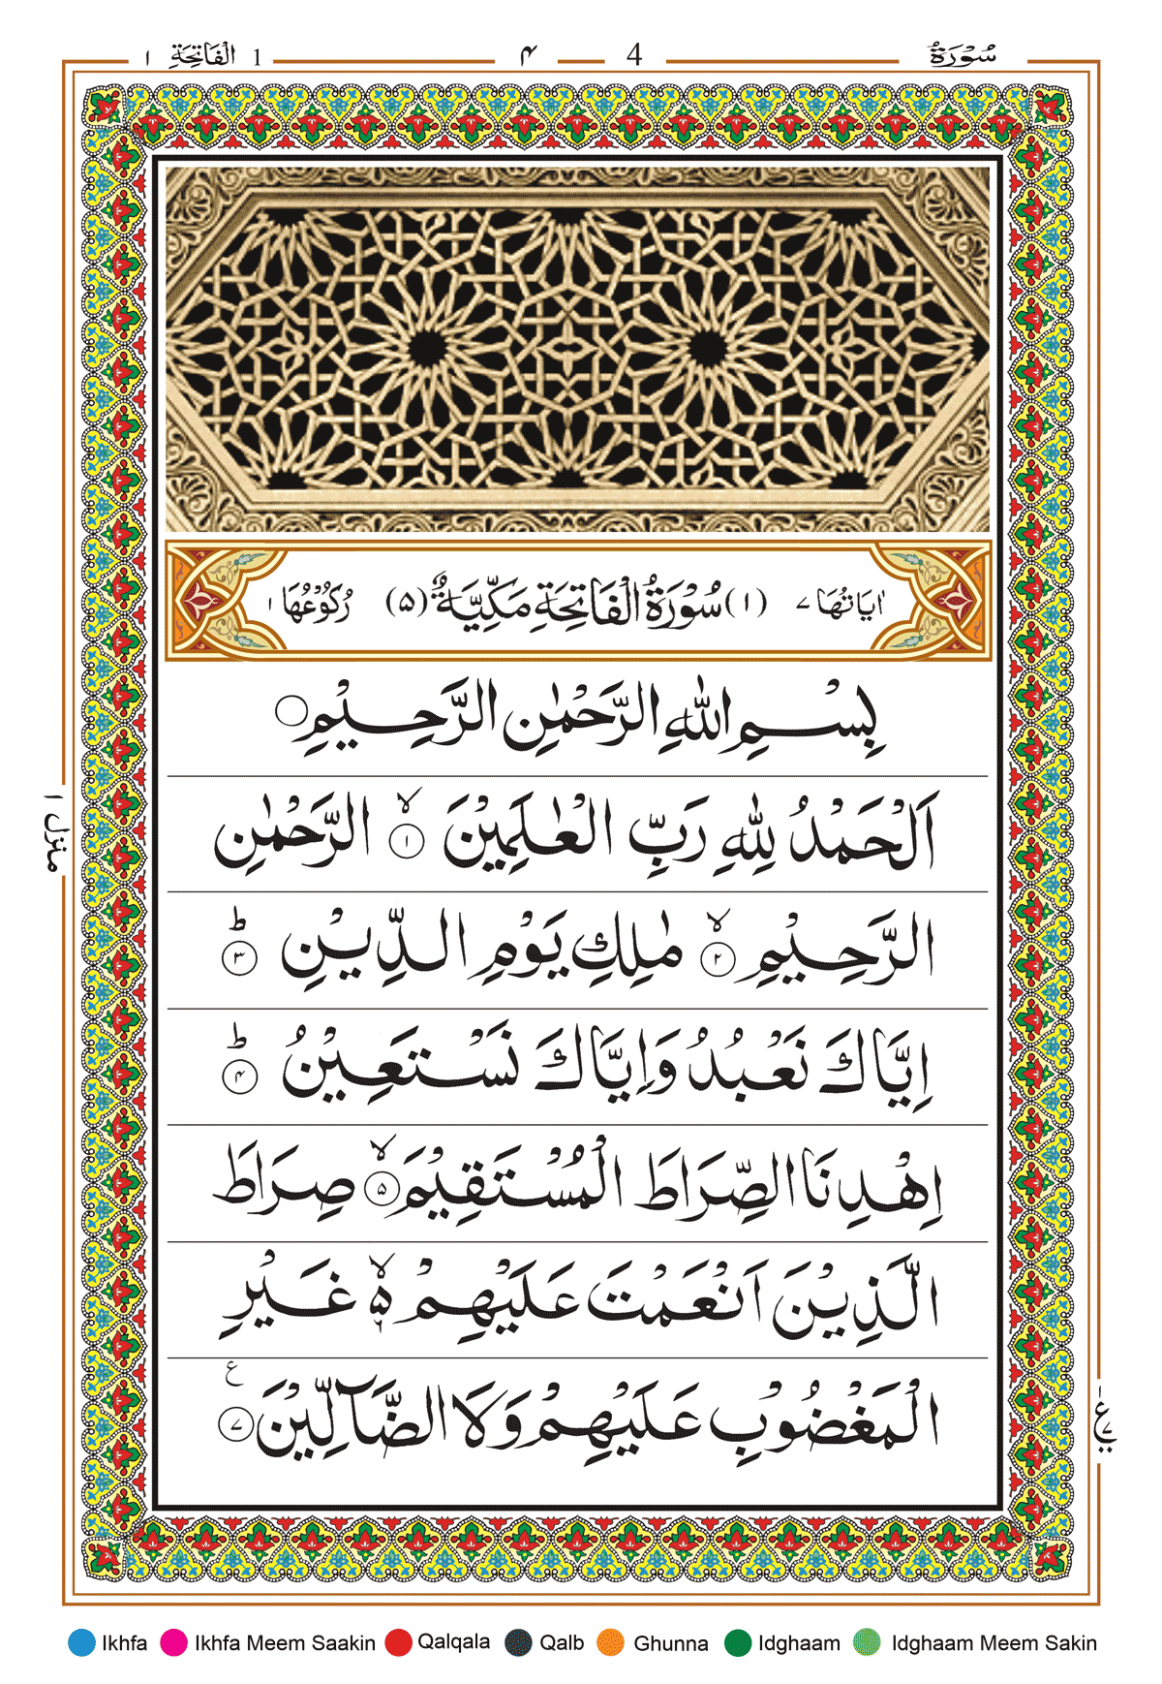 سُوْرَةُ 4 ۴ 1 اَلْفَاتِحَةِ ١
اٰيَاتُهَا ٧ (١) سُوْرَةُ الْفَاتِحَةِ مَكِّيَّةٌ (٥) رُكُوْعُهَا ١
بِسْمِ اللّٰهِ الرَّحْمٰنِ الرَّحِيْمِ ۝
اَلْحَمْدُ لِلّٰهِ رَبِّ الْعٰلَمِيْنَ ۙ ١ الرَّحْمٰنِ
الرَّحِيْمِ ۙ ٢ مٰلِكِ يَوْمِ الدِّيْنِ ؕ ٣
اِيَّاكَ نَعْبُدُ وَاِيَّاكَ نَسْتَعِيْنُ ؕ ۴
اِهْدِنَا الصِّرَاطَ الْمُسْتَقِيْمَ ۙ ۵ صِرَاطَ
الَّذِيْنَ اَنْعَمْتَ عَلَيْهِمْ ۙ۬ ۵ غَيْرِ
الْمَغْضُوْبِ عَلَيْهِمْ وَلَا الضَّآلِّيْنَ ٧ ع
منزل ١
ع
Ikhfa Ikhfa Meem Saakin Qalqala Qalb Ghunna Idghaam Idghaam Meem Sakin